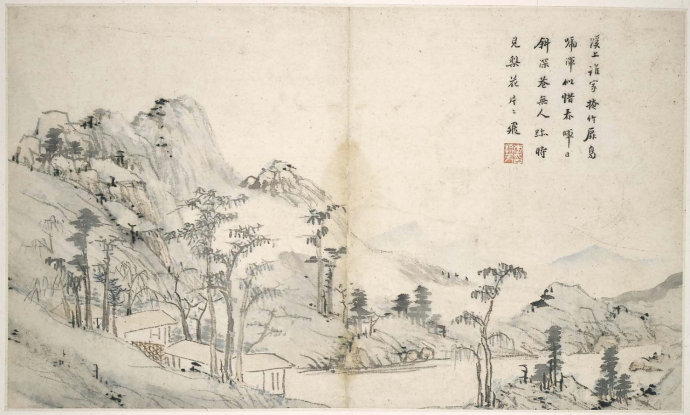 溪上誰家掩竹扉鳥
啼渾似惜春暉日
斜深巷無人跡時
見梨花片〻飛